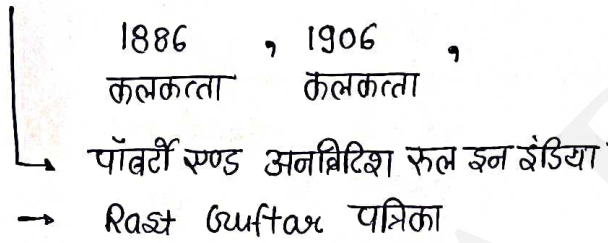 1886 , 1906 ,
कलकत्ता कलकत्ता
→ पॉवर्टी एण्ड अनब्रिटिश रूल इन इंडिया
→ Rast Guftar पत्रिका